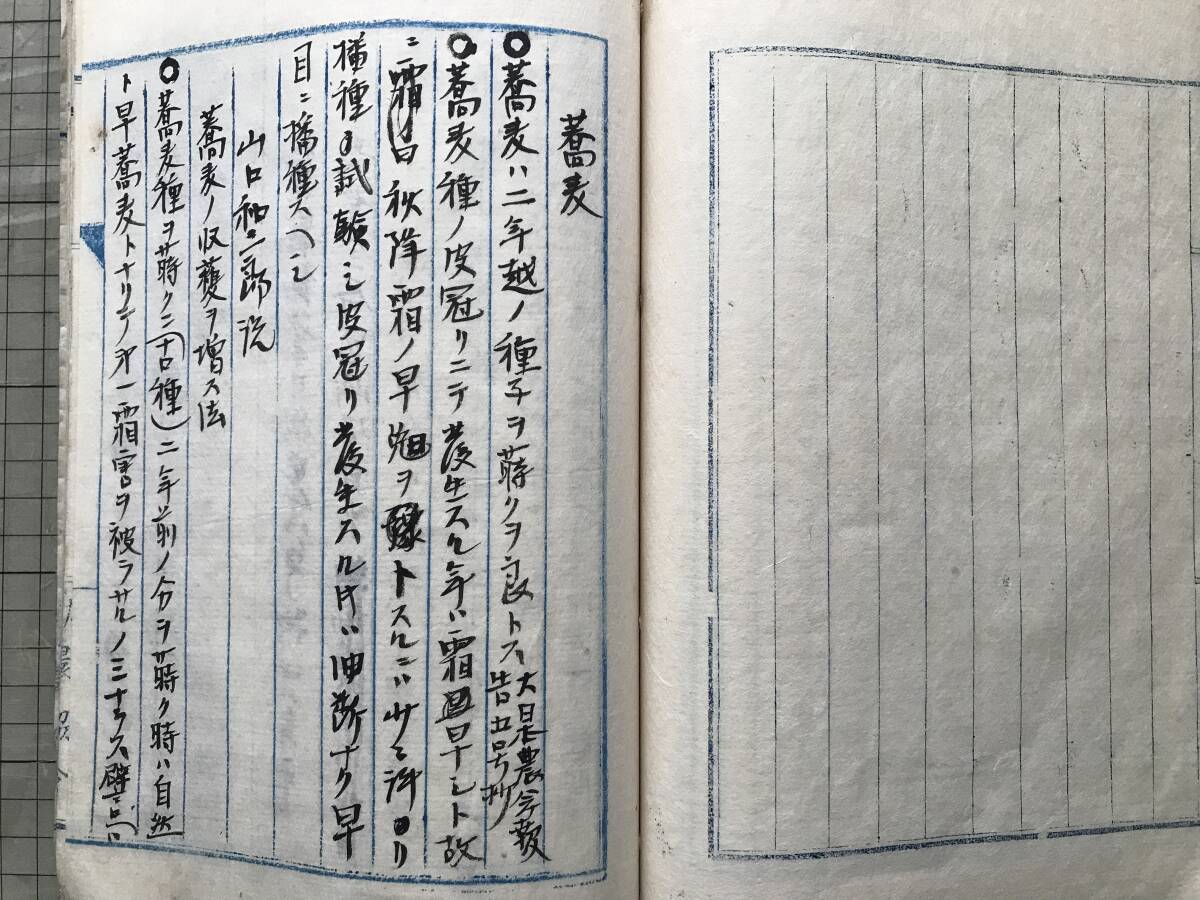 蕎麦
蕎麦ハ二年越ノ種子ヲ蒔クヲ良トス 大日本農会報
告 五号抄
蕎麦種ノ皮冠リニテ発生スル年ハ霜早シト故
ニ 秋降霜ノ早晩ヲ トスルニハ少シ リ
播種 試験シ皮冠リ発生スル片ハ油断ナク早
目ニ播種スヘシ
山口和三郎説
蕎麦ノ収穫ヲ増ス法
蕎麦種ヲ蒔クニ(古種)二年前ノ分ヲ蒔ク時ハ自然
ト早蕎麦トナリテ第一霜害ヲ被ラサルノミナラス譬ヘハ